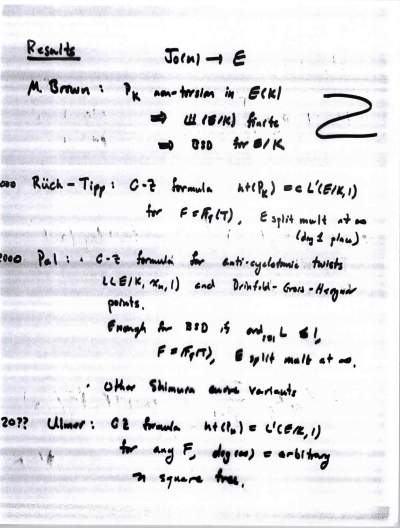 Results J₀(n) → E
M. Brown : P_K non-torsion in E(K)
⇒ Ш(E/K) finite
⇒ BSD for E/K
000 Rück-Tipp : G-Z formula ht(P_K) = c L'(E/K,1)
for F = F_q(T), E split mult at ∞
(deg 1 place)
2000 Pal : · G-Z formula for anti-cyclotomic twists
L(E/K, χ_n, 1) and Drinfeld-Gross-Heegner
points.
Enough for BSD if ord_{s=1} L ≤ 1,
F = F_q(T), E split mult at ∞.
· Other Shimura curve variants
20?? Ulmer : GZ formula ht(P_n) = L'(E/K,1)
for any F, deg(∞) = arbitrary
n square free.